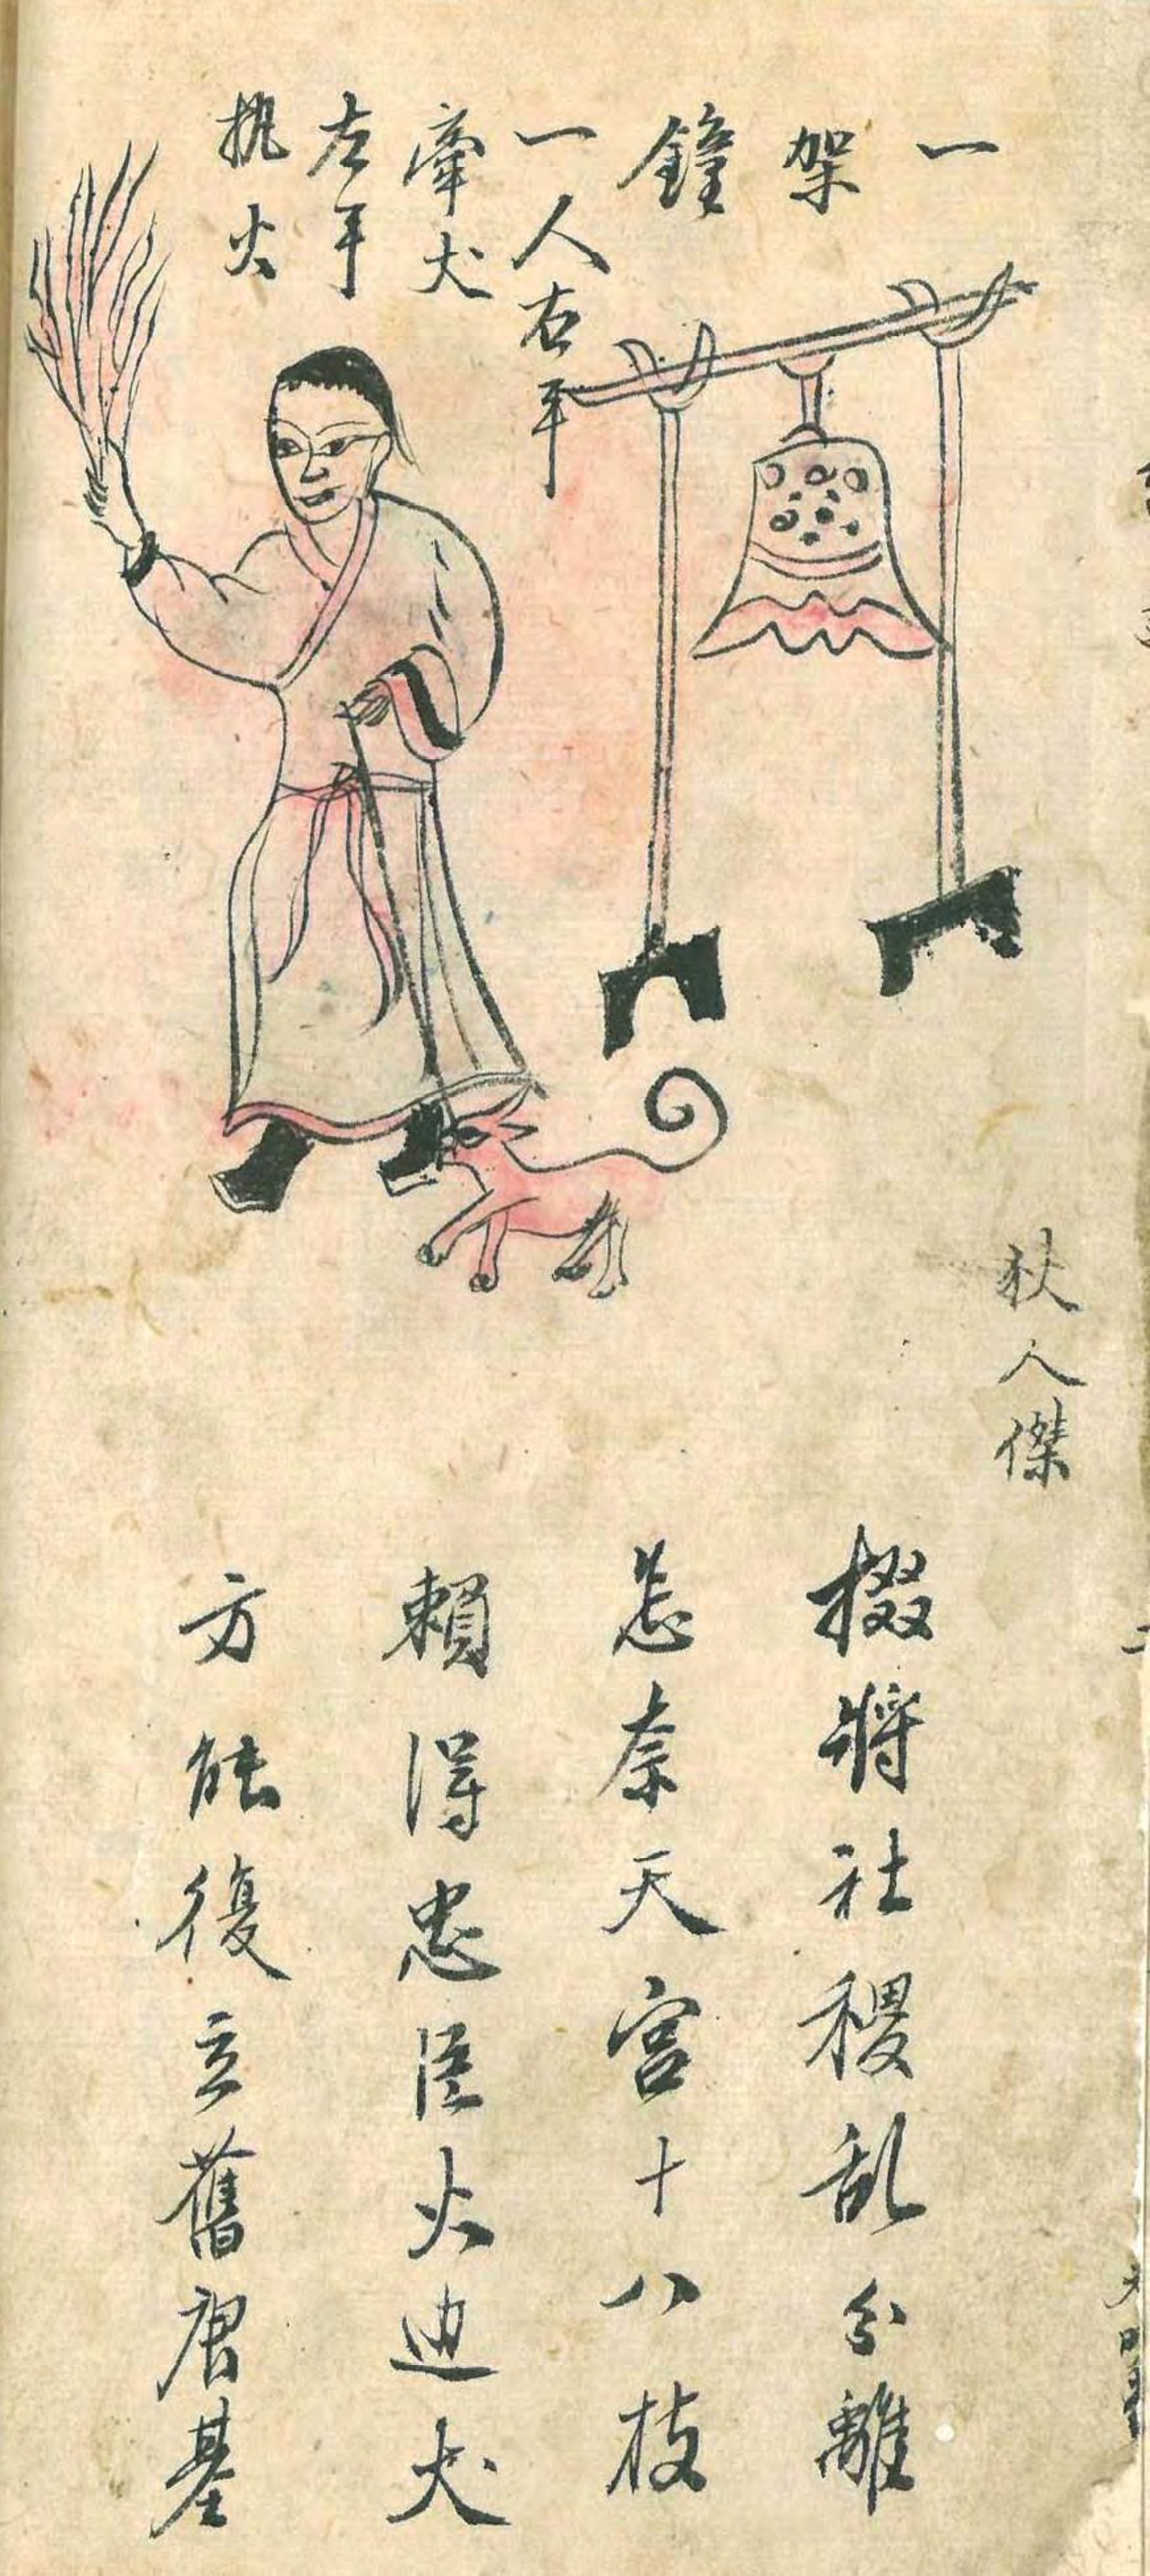 一
架
鐘
一人右手
牽犬
左手
执火
狄人傑
掇將社稷乱分離
怎奈天宫十八枝
賴得忠臣火边犬
方能復立舊唐基